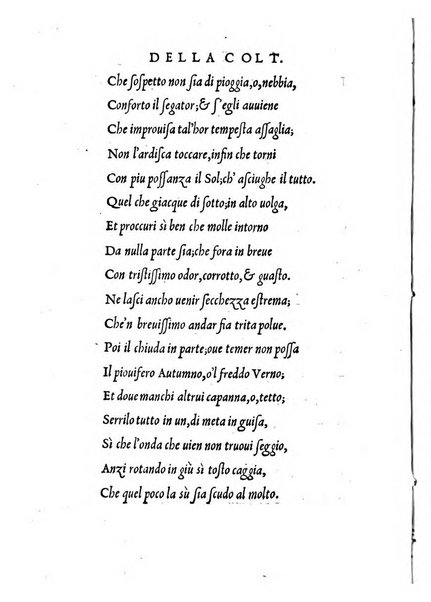 DELLA COLT.
Che ſoſpetto non ſia di pioggia,o,nebbia,
Conforto il ſegator;& s'egli auuiene
Che improuiſa tal'hor tempeſta aſſaglia;
Non l'ardiſca toccare,infin che torni
Con piu poſſanza il Sol;ch' aſciughe il tutto.
Quel che giacque di ſotto;in alto uolga,
Et proccuri sì ben che molle intorno
Da nulla parte ſia;che fora in breue
Con triſtiſſimo odor,corrotto,& guaſto.
Ne laſci ancho uenir ſecchezza eſtrema;
Che'n breuiſſimo andar ſia trita polue.
Poi il chiuda in parte;oue temer non poſſa
Il piouifero Autumno,o'l freddo Verno;
Et doue manchi altrui capanna,o,tetto;
Serrilo tutto in un,di meta in guiſa,
Sì che l'onda che uien non truoui ſeggio,
Anzi rotando in giù sì toſto caggia,
Che quel poco la sù ſia ſcudo al molto.